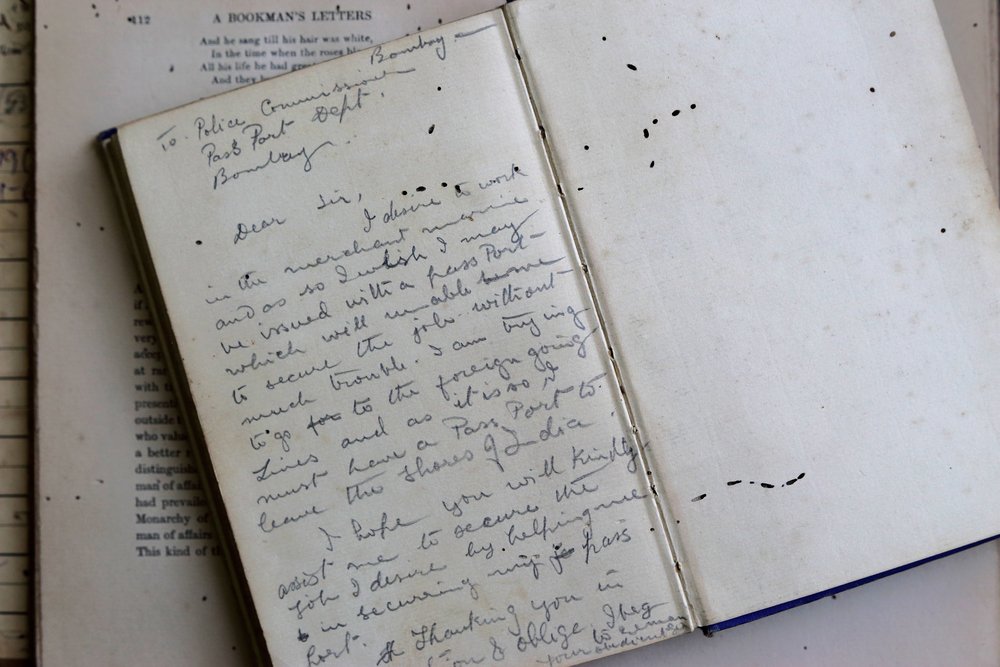 112 A BOOKMAN'S LETTERS
And he sang till his hair was white,
In the time when the roses
All his life he had
And they
Bombay
To Police Commissioner
Pass Port Dept.
Bombay.
Dear Sir,
I desire to work
in the merchant marine
and as so I wish I may
be issued with a pass Port
which will unable me
to secure the job without
much trouble. I am trying
to go for to the foreign going
Lines and as it is so I
must have a Pass Port to
leave the shores of India.
I hope you will kindly
assist me to secure the
job I desire by helping me
in secureing my pass
Port. Thanking you in
& oblige. I beg
to remain
your obedient
rew
very
at
with
presen
outside
who val
a better
distinguis
man of affai
had prevaile
Monarchy of
man of affairs
This kind of th